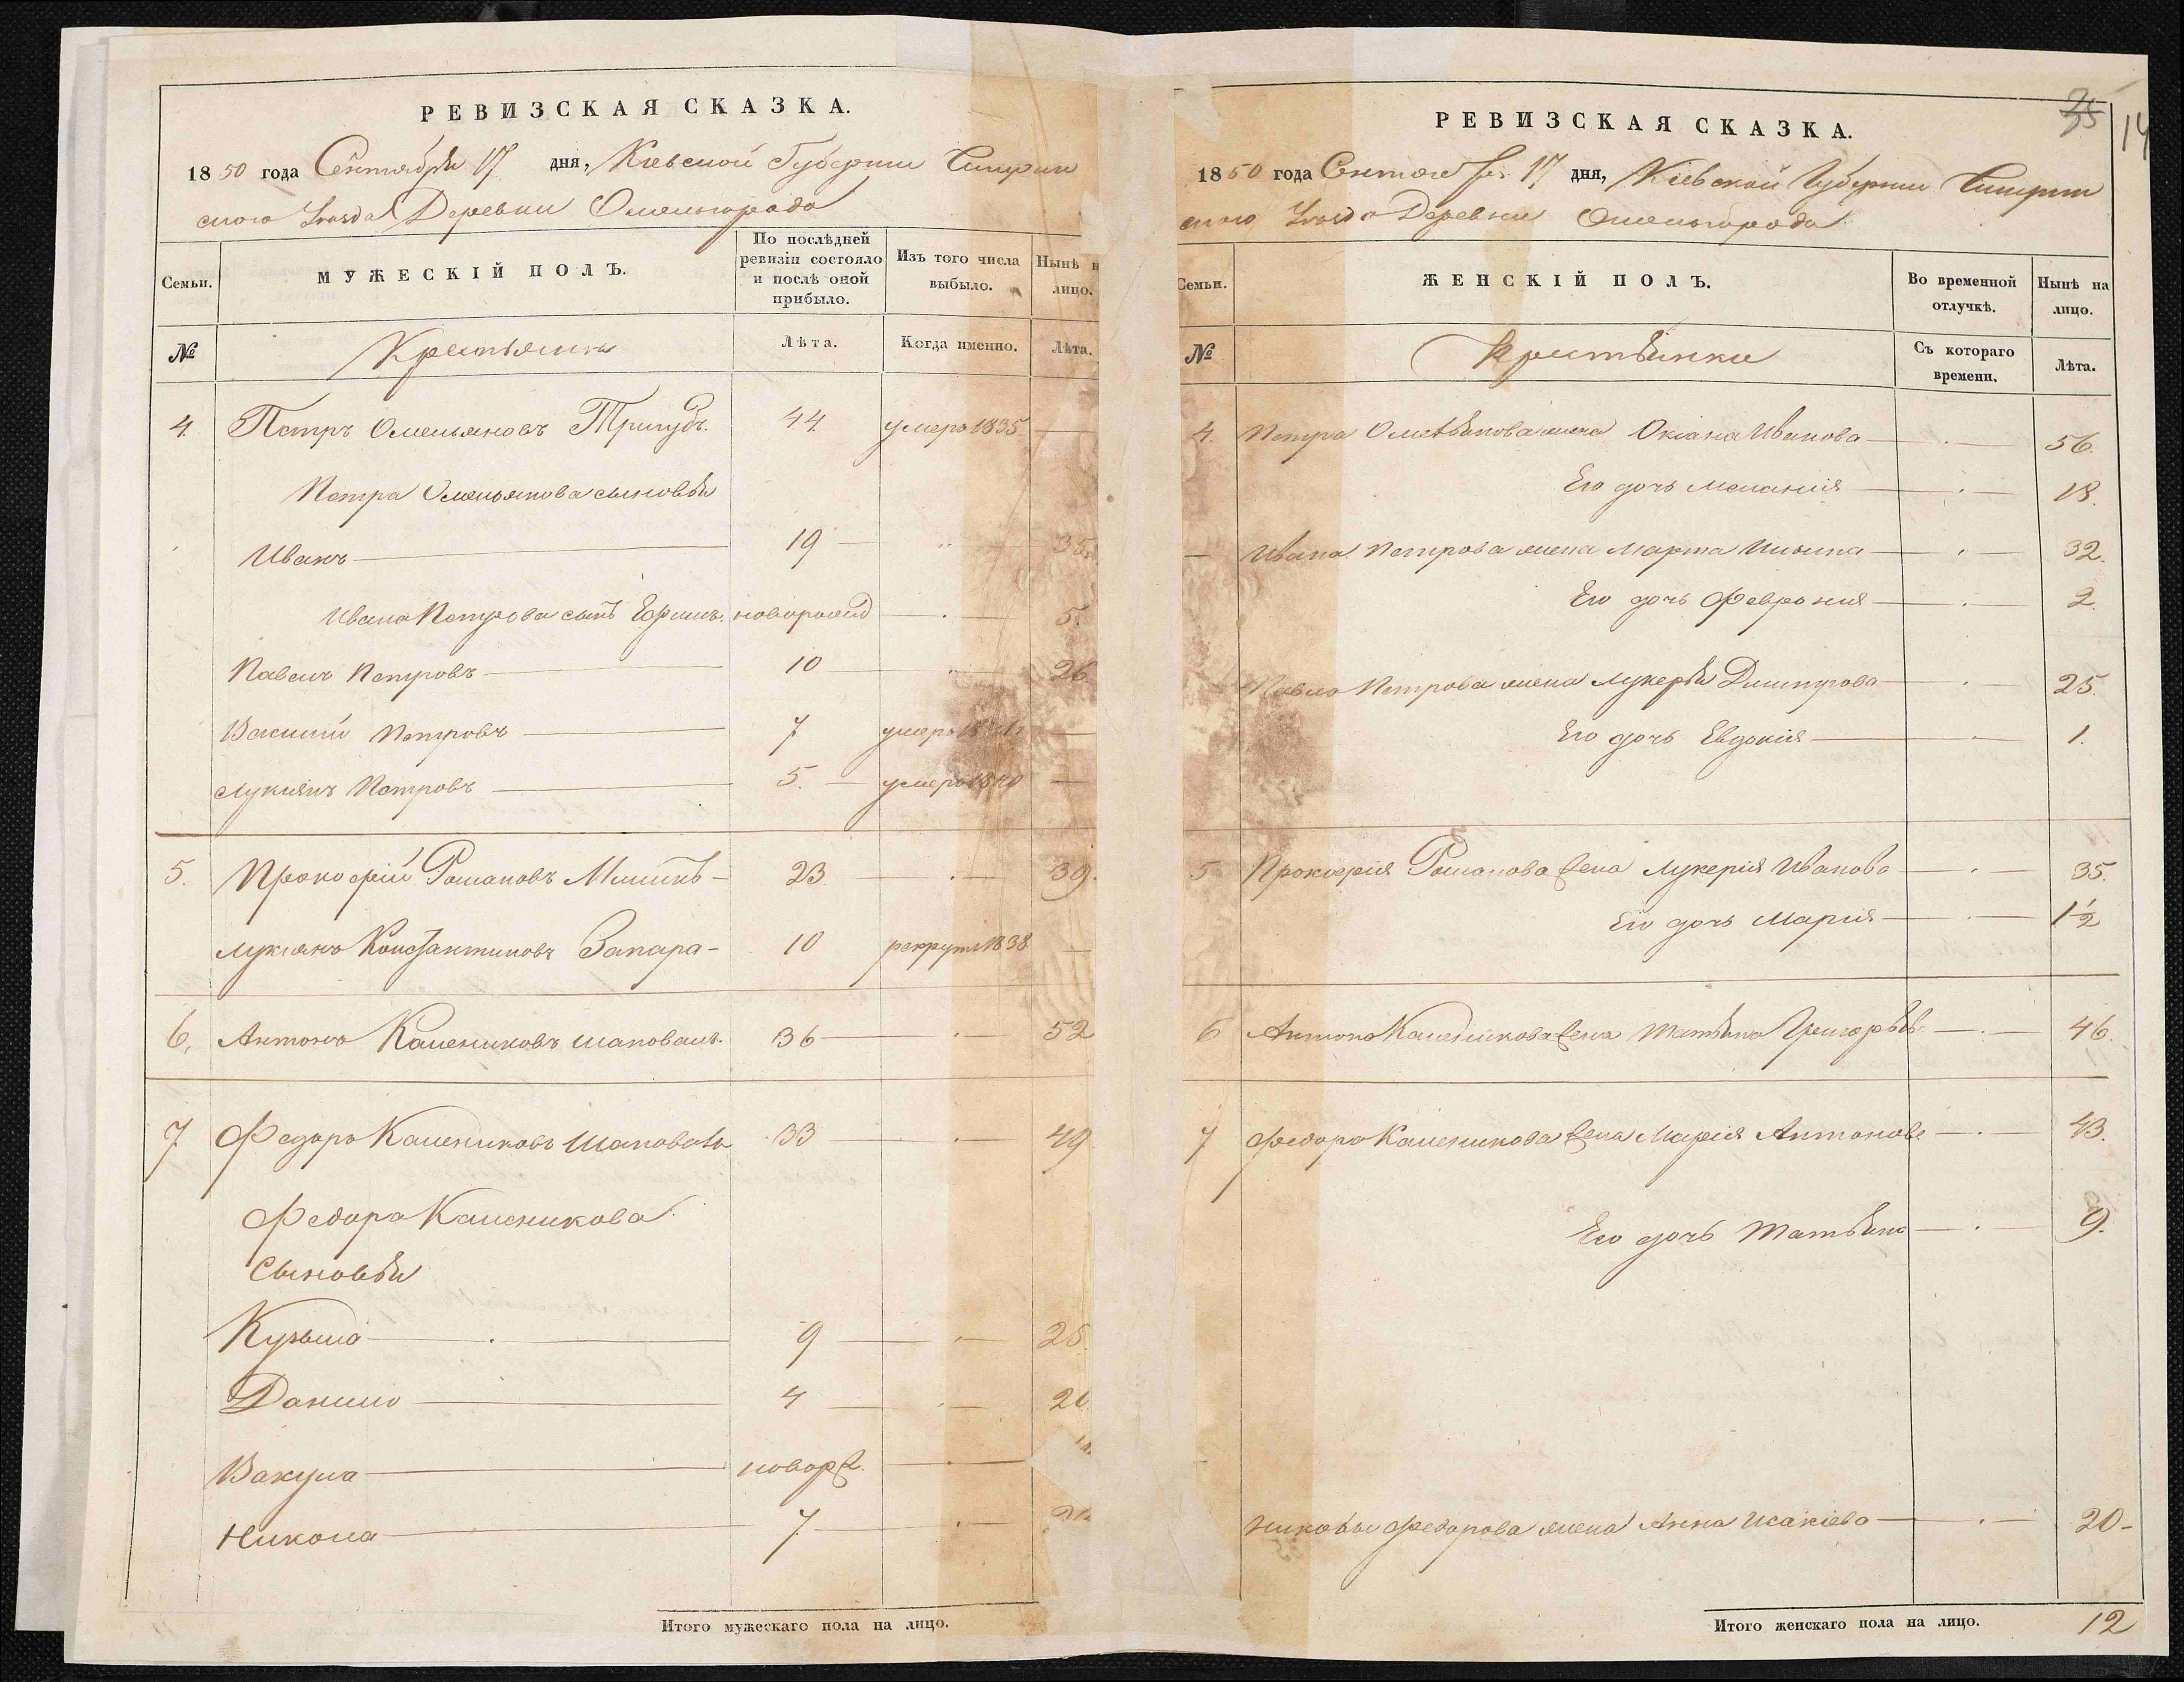 РЕВИЗСКАЯ СКАЗКА.
1850 года Сентября 17 дня, Кіевской Губерніи
ского Уѣзда Деревни
Семьи.
МУЖЕСКІЙ ПОЛЪ.
По послѣдней ревизіи состояло и послѣ оной прибыло.
Изъ того числа выбыло.
Нынѣ н лицо.
№
Крестьяни
Лѣта.
Когда именно.
Лѣта.
4. Петръ Омельяновъ Тригубъ. 44 умеръ 1835
Петра Омельянова сыновья
Иванъ 19 35
Ивана Петрова сынъ Ефимъ. новорожд 5.
Павелъ Петровъ 10 26
Василій Петровъ 7 умеръ
Лукіянъ Петровъ 5. умеръ 1840
5. Прокофій Романовъ 23 39.
Лукіянъ Константиновъ Запара 10 рекрут 1838
6. Антонъ Калениковъ Шаповалъ. 36 52
7 Федоръ Калениковъ Шаповалъ 33 49
Федора Каленикова
Сыновья
Кузьма 9 25
Данило 4 20
Вакула новорж.
Никола 7
Итого мужескаго пола на лицо.
РЕВИЗСКАЯ СКАЗКА.
35
14
1850 года 17 дня, Кіевской Губерніи
ского Уѣзда Деревни
Семьи.
ЖЕНСКІЙ ПОЛЪ.
Во временной отлучкѣ.
Нынѣ на лицо.
№
Крестьянки
Съ котораго времени.
Лѣта.
4. Петра Омельянова жена Оксана Иванова 56.
Его дочь Меланія 18.
Ивана Петрова жена Марта Ильина 32.
Его дочь Феврония 2.
Павла Петрова жена Лукерья Дмитрова 25.
Его дочь Евдокія 1.
5 Прокофія Романова жена Лукерія Иванова 35.
Его дочь Марія 1½
6 Антона Каленикова жена Татьяна Григорьев. 46.
7 Федора Каленикова жена Марія Антонова 43.
Его дочь Татьяна 9.
Николы Федорова жена Анна Исакіева 20
Итого женскаго пола на лицо. 12